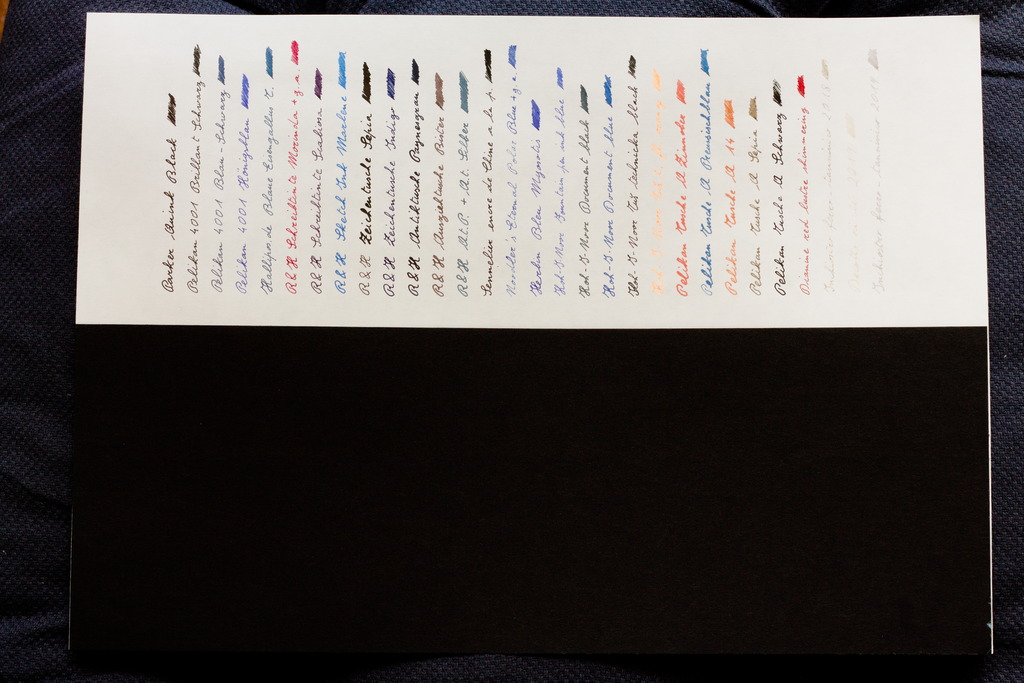 Parker Quink Black
Pelikan 4001 Brillant Schwarz
Pelikan 4001 Blau-Schwarz
Pelikan 4001 Königsblau
R&K Schreibtinte Morinda + g.a.
R&K Schreibtinte Scabiosa
R&K Sketch Ink Marlene
R&K Zeichentusche Sepia
R&K Zeichentusche Indigo
R&K Antiktusche Paynesgrau
R&K Ausziehtusche Bister
R&K Alt.P. + Alt. Silber
Sennelier encre de Chine a la p.
Noodler's Eternal Polar Blue + g.a.
Herlin Bleu Myosotis
Koh-I-Noor Fountain pen ink blue
Koh-I-Noor Document black
Koh-I-Noor Document blue
Koh-I-Noor Tuš technika black
Pelikan Tusche A Zinnober
Pelikan Tusche A Preussischblau
Pelikan Tusche A 14
Pelikan Tusche A Sepia
Pelikan Tusche A Schwarz
Diamine red lustre shimmering